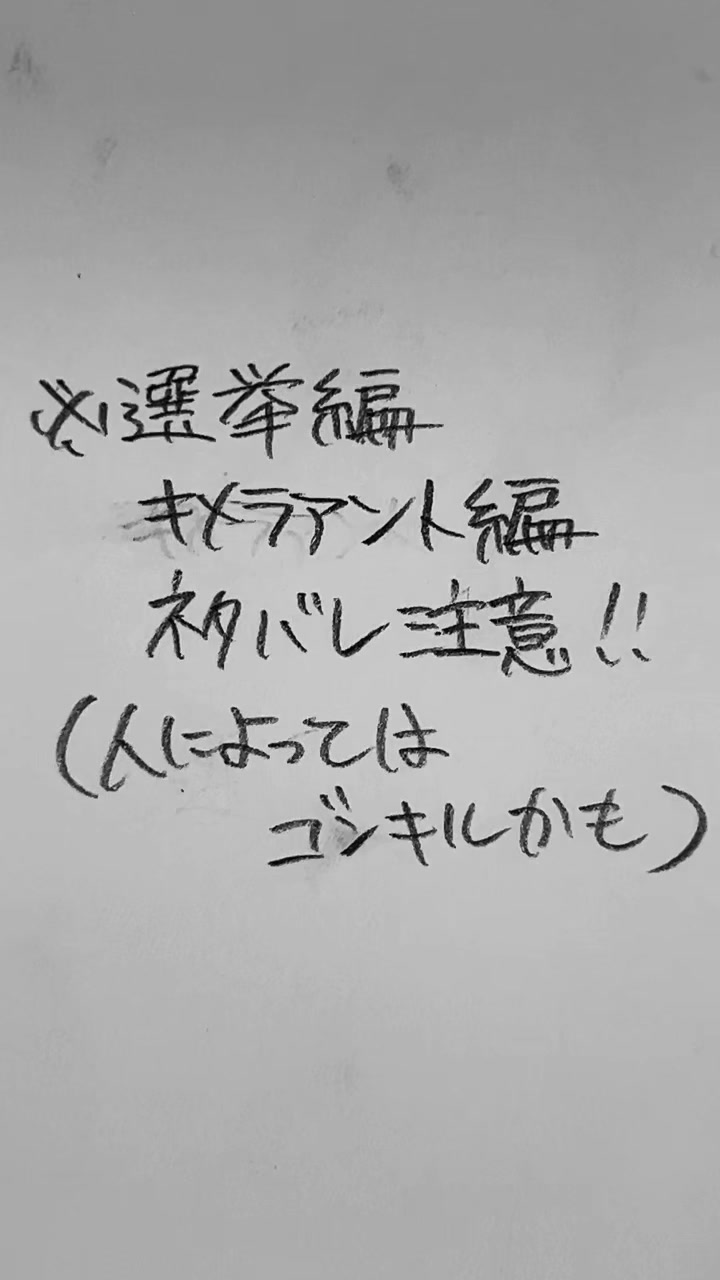 ※選挙編
キメラアント編
ネタバレ注意!!
(人によっては
ゴンキルかも)